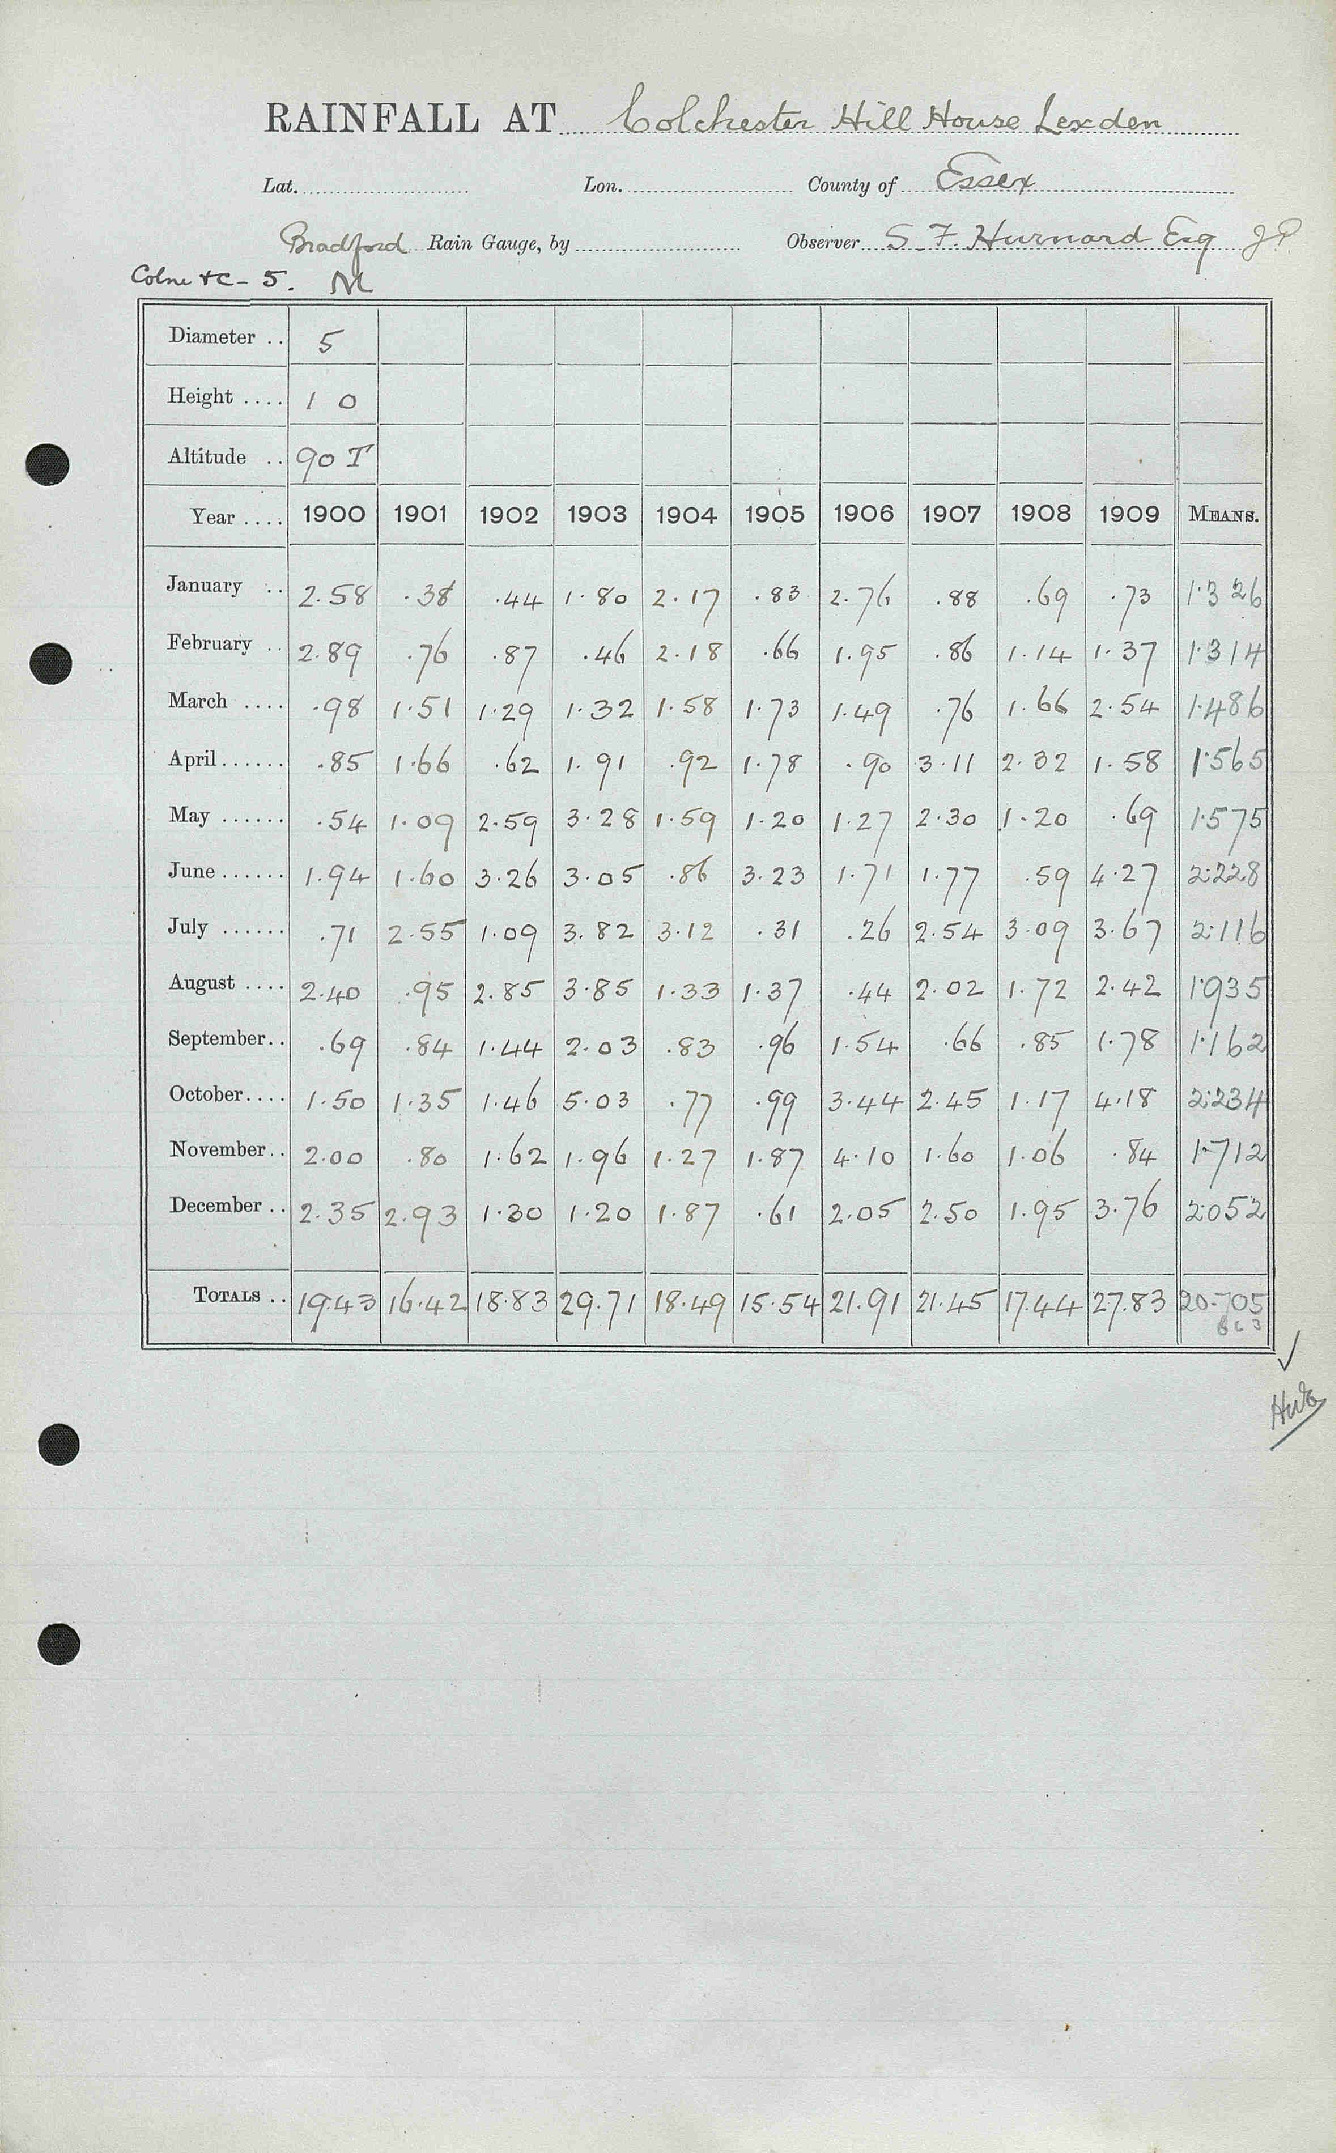 RAINFALL AT Colchester Hill House Lexden
Lat. Lon. County of Essex
Bradford Rain Gauge, by Observer S. F. Hurnard Esq JP
Colne &c - 5. M
Diameter .. 5
Height .... 1 0
Altitude .. 90 T
Year .... 1900 1901 1902 1903 1904 1905 1906 1907 1908 1909 MEANS.
January .. 2.58 .38 .44 1.80 2.17 .83 2.76 .88 .69 .73 1.326
February .. 2.89 .76 .87 .46 2.18 .66 1.95 .86 1.14 1.37 1.314
March .... .98 1.51 1.29 1.32 1.58 1.73 1.49 .76 1.66 2.54 1.486
April ...... .85 1.66 .62 1.91 .92 1.78 .90 3.11 2.32 1.58 1.565
May ...... .54 1.09 2.59 3.28 1.59 1.20 1.27 2.30 1.20 .69 1.575
June ...... 1.94 1.60 3.26 3.05 .86 3.23 1.71 1.77 .59 4.27 2.228
July ...... .71 2.55 1.09 3.82 3.12 .31 .26 2.54 3.09 3.67 2.116
August .... 2.40 .95 2.85 3.85 1.33 1.37 .44 2.02 1.72 2.42 1.935
September .. .69 .84 1.44 2.03 .83 .96 1.54 .66 .85 1.78 1.162
October .... 1.50 1.35 1.46 5.03 .77 .99 3.44 2.45 1.17 4.18 2.234
November .. 2.00 .80 1.62 1.96 1.27 1.87 4.10 1.60 1.06 .84 1.712
December .. 2.35 2.93 1.30 1.20 1.87 .61 2.05 2.50 1.95 3.76 2.052
TOTALS .. 19.43 16.42 18.83 29.71 18.49 15.54 21.91 21.45 17.44 27.83 20.705